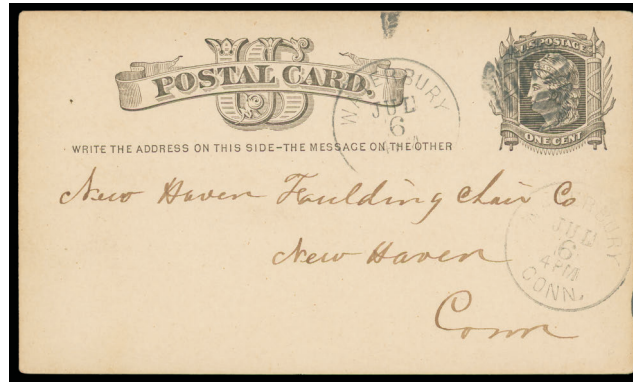 US
POSTAL CARD.
U.S. POSTAGE
ONE CENT
WATERBURY
JUL
6
WRITE THE ADDRESS ON THIS SIDE-THE MESSAGE ON THE OTHER
New Haven Foulding Chair Co
New Haven
Conn
JUL
6
4 PM
CONN.